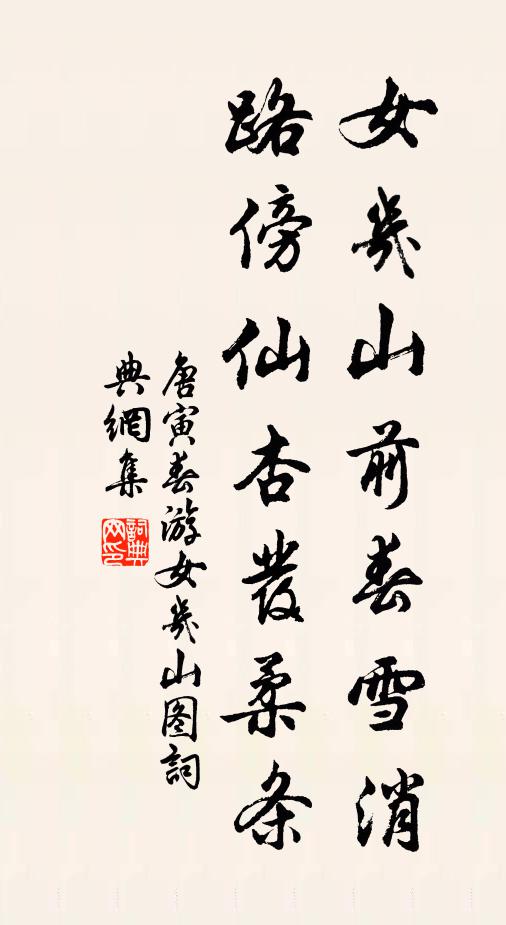 女幾山前春雪消
路傍仙杏發柔条
唐寅春游女幾山图詞
典網集
詞典
网印